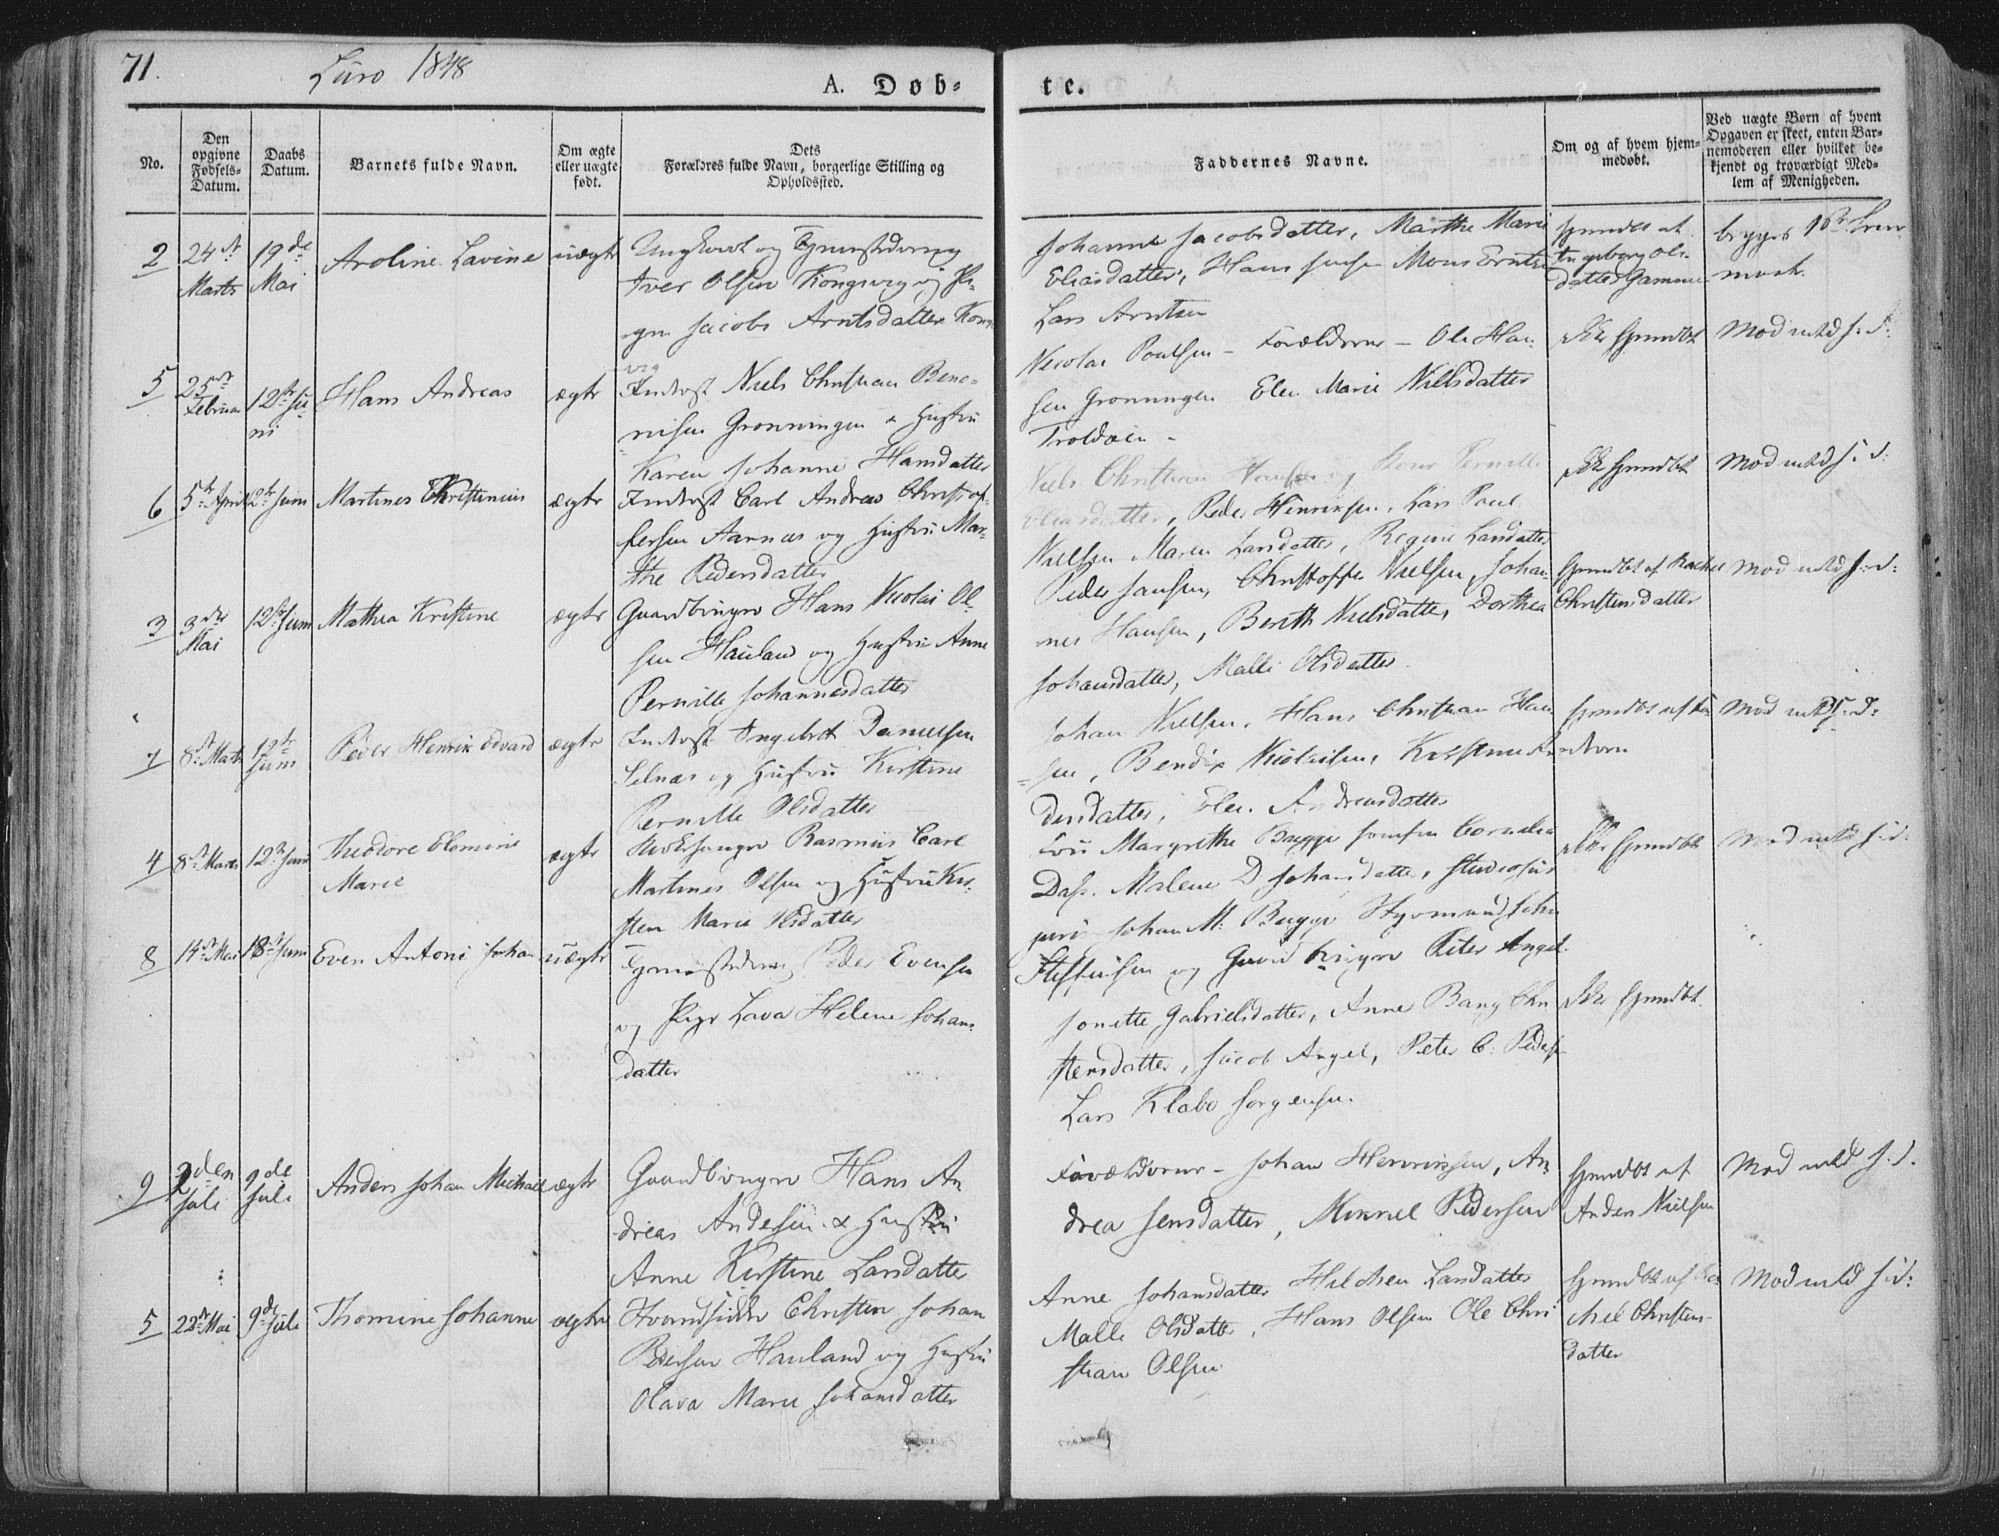 71.
Lurø 1848
A. Døb-
te.
No.
Den opgivne Fødsels-Datum.
Daabs Datum.
Barnets fulde Navn.
Om ægte eller uægte født.
Dets Forældres fulde Navn, borgerlige Stilling og Opholdssted.
Faddernes Navne.
Om og af hvem hjem-medøbt.
Ved uægte Børn af hvem Opgaven er skeet, enten Bar-nemoderen eller hvilket be-kjendt og troværdigt Med-lem af Menigheden.
2 24de Marts 19de Mai Aroline Lavine uægte
Iver Olsen Kongsvig og Pi-
ge Jacobe Arntsdatter Kongs
vig
Johanna Jacobsdatter, Marthe Marie
Eliasdatter, Hans Jensen Mons Erntsen
Lars Arntsen
hjemdøbt af
Ingeborg Ols-
datter
5 25de Februar 12te Juni Hans Andreas ægte
Inderst Niels Christian Beno-
nisen Grønningen & Hustru
Karen Johanne Hansdatter
Nicolai Poulsen - Forældrene - Ole Han-
sen Grønningen Elen Marie Nielsdatter
Troldøen -
Ikke hjemdøbt
Modr meld s. s.
6 5te April 12te Juni Martines Christinius ægte
Inderst Carl Andreas Christof-
fersen Aarnæs og Hustru Mar-
the Pedersdatter
Niels Christian
Eliasdatter, Peder Henriksen, Lars Paul
Nielsen Maren Larsdatter, Regine Larsdatter
Ikke hjemdøbt
Mod meld s. s.
3 3die Mai 12te Juni Mathea Kristine ægte
Gaardbruger Hans Nicolai Ol-
sen Hauland og Hustru Anne
Pernille Johannesdatter
Peder Jansen, Christoffer Nielsen, Johan-
nes Hansen, Berith Nielsdatter, Dorthea
Johansdatter, Malli Olsdatter
hjemdøbt af Rachel
Christensdatter
Mod meld s. s.
7 8de Marts 12te Juni Peder Henrik Edvard ægte
Inderst Ingebrit Danielsen
Selnæs og Hustru Kirstine
Pernille Olsdatter
Johan Nielsen, Hans Christian Han-
sen, Bendix Nicolaisen, Kirstine An-
dersdatter, Elen Andreasdatter
Mod meld s. s.
4 8de Marts 12te Juni Theodore Elomine
Marie ægte
Kirkesanger Rasmus Carl
Martines Olsen og Hustru Kir-
sten Marie Olsdatter
Fru Margrethe Bugge Jomfru Cornelia
Dass. Malene D Johansdatter, Studiosus
juris Johan M. Bugge
og Gaardbruger Peter Angel
Ikke hjemdøbt
Mod meld s. s.
8 14de Mai 18de Juni Even Antoni Johan uægte
Peder Evensen
og Pige Lava Helene Johans-
datter
Jonette Gabrielsdatter, Anne Bang Chri
stensdatter, Jacob Angel, Peter C. Peders
Lars Klabo Jørgensen.
Ikke hjemdøbt.
9 2den Juli 9de Juli Anders Johan Michael ægte
Gaardbruger Hans An-
dreas Andersen & Hustru
Anne Kirstine Larsdatter
Forældrene - Johan Henriksen, An-
drea Jensdatter, Mikkel Pedersen
hjemdøbt af
Anders Nielsen
Mod meld s. s.
5 22de Mai 9de Juli Thomine Johanne ægte
Huusmand Christen Johan
Pedersen Hauland og Hustru
Olava Marie Johansdatter
Anne Johansdatter Larsdatter
Malli Olsdatter, Hans Olsen Ole Chri
stian Olsen
hjemdøbt af Ra
chel Christens-
datter
Mod meld s. s.